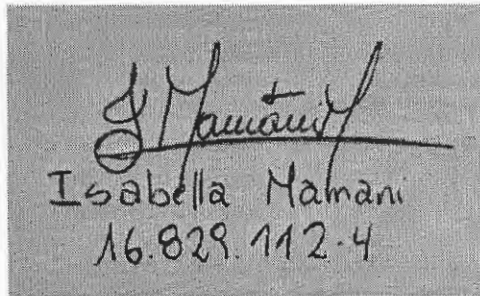 I Mamani M
Isabella Mamani
16.829.112-4